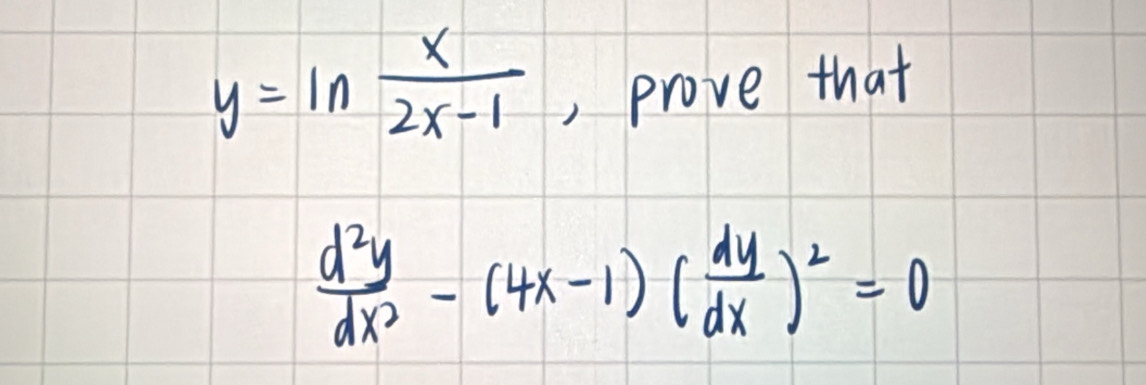 y = ln x/(2x-1), prove that
d²y/dx² - (4x-1)(dy/dx)² = 0